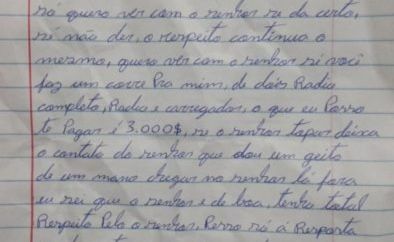 só quero ver com o senhor se da certo,
si não der, o respeito continua o
mesmo, quero ver com o senhor si voci
faz um corre Pra mim, de dois Radia
completo, Radia e carregador, o que eu Posso
te Pagar i 3.000$, se o senhor topar deixa
o contato do senhor que dou um geito
de um mano chegar no senhor lá fora
eu sei que o senhor e de boa, tenho total
Respeito Pelo o senhor, Posso só a Resposta